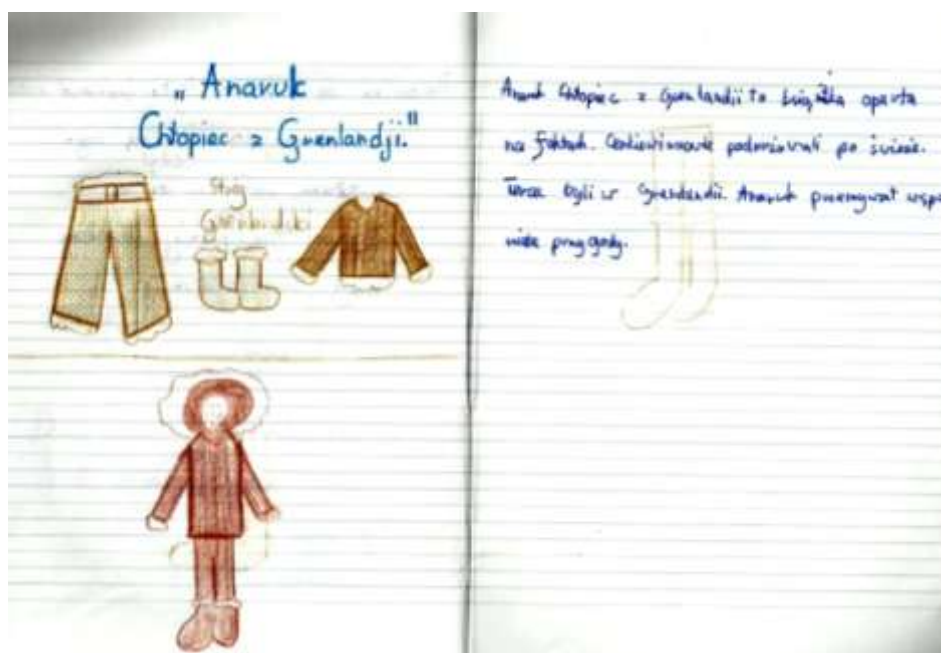 „Anavuk
Chłopiec z Grenlandji."
Strój
Grenlandzki
Anavuk Chłopiec z Grenlandii to książka oparta
na faktach. Centkiewiczowie podróżowali po świecie.
byli w Grenlandii. Anavuk przeżywał wspa
niałe przygody.